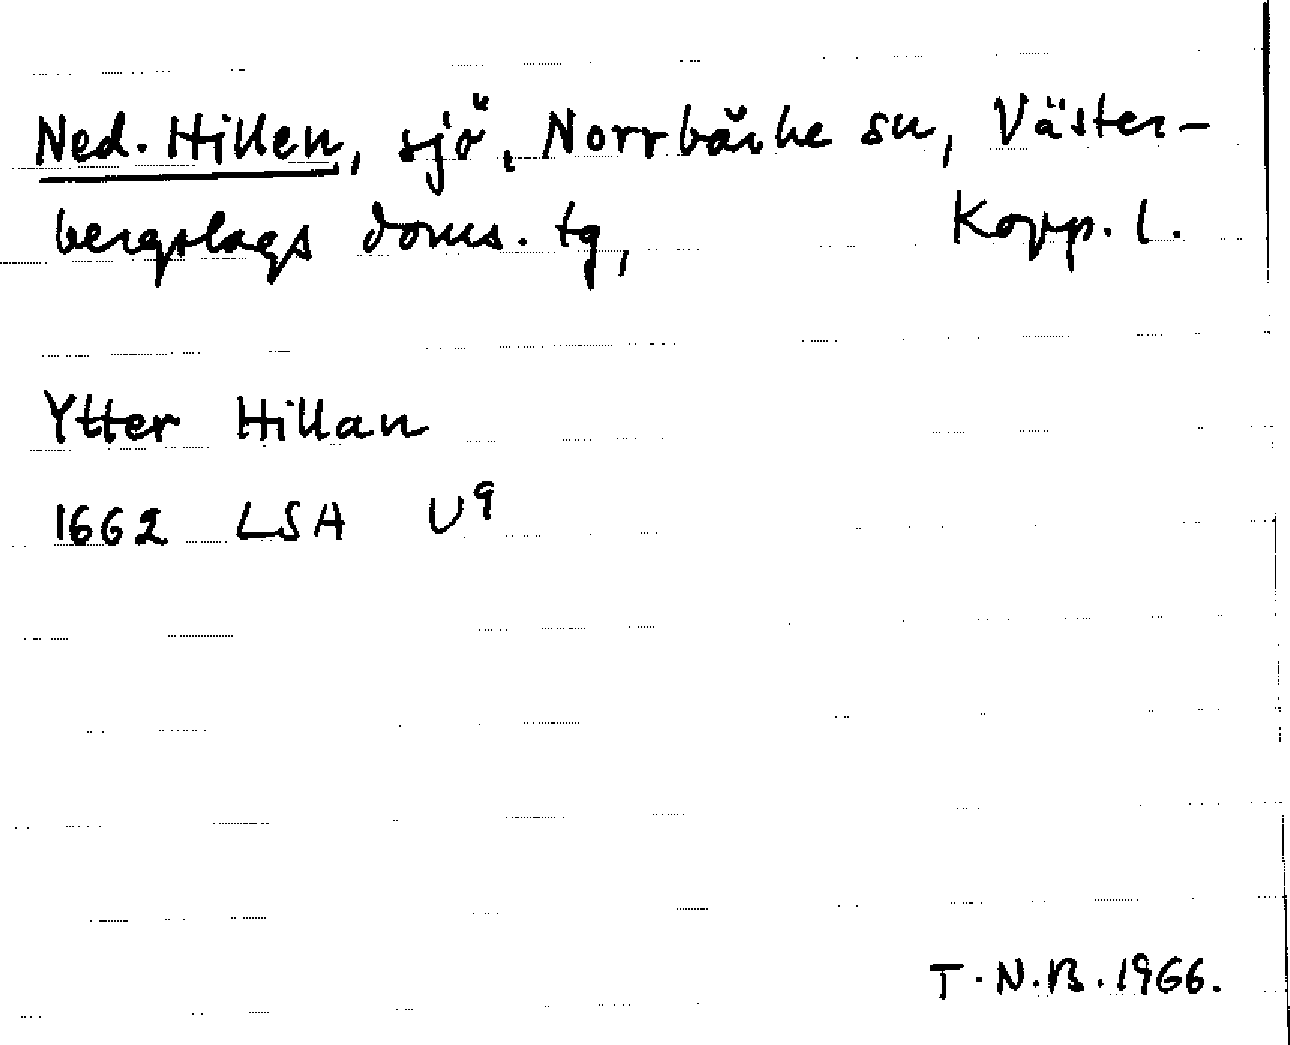 Ned. Hillen, sjö, Norrbärke sn, Väster-
bergslags doms. tg, Kopp. l.
Ytter Hillan
1662 LSA U9
T.N.B. 1966.